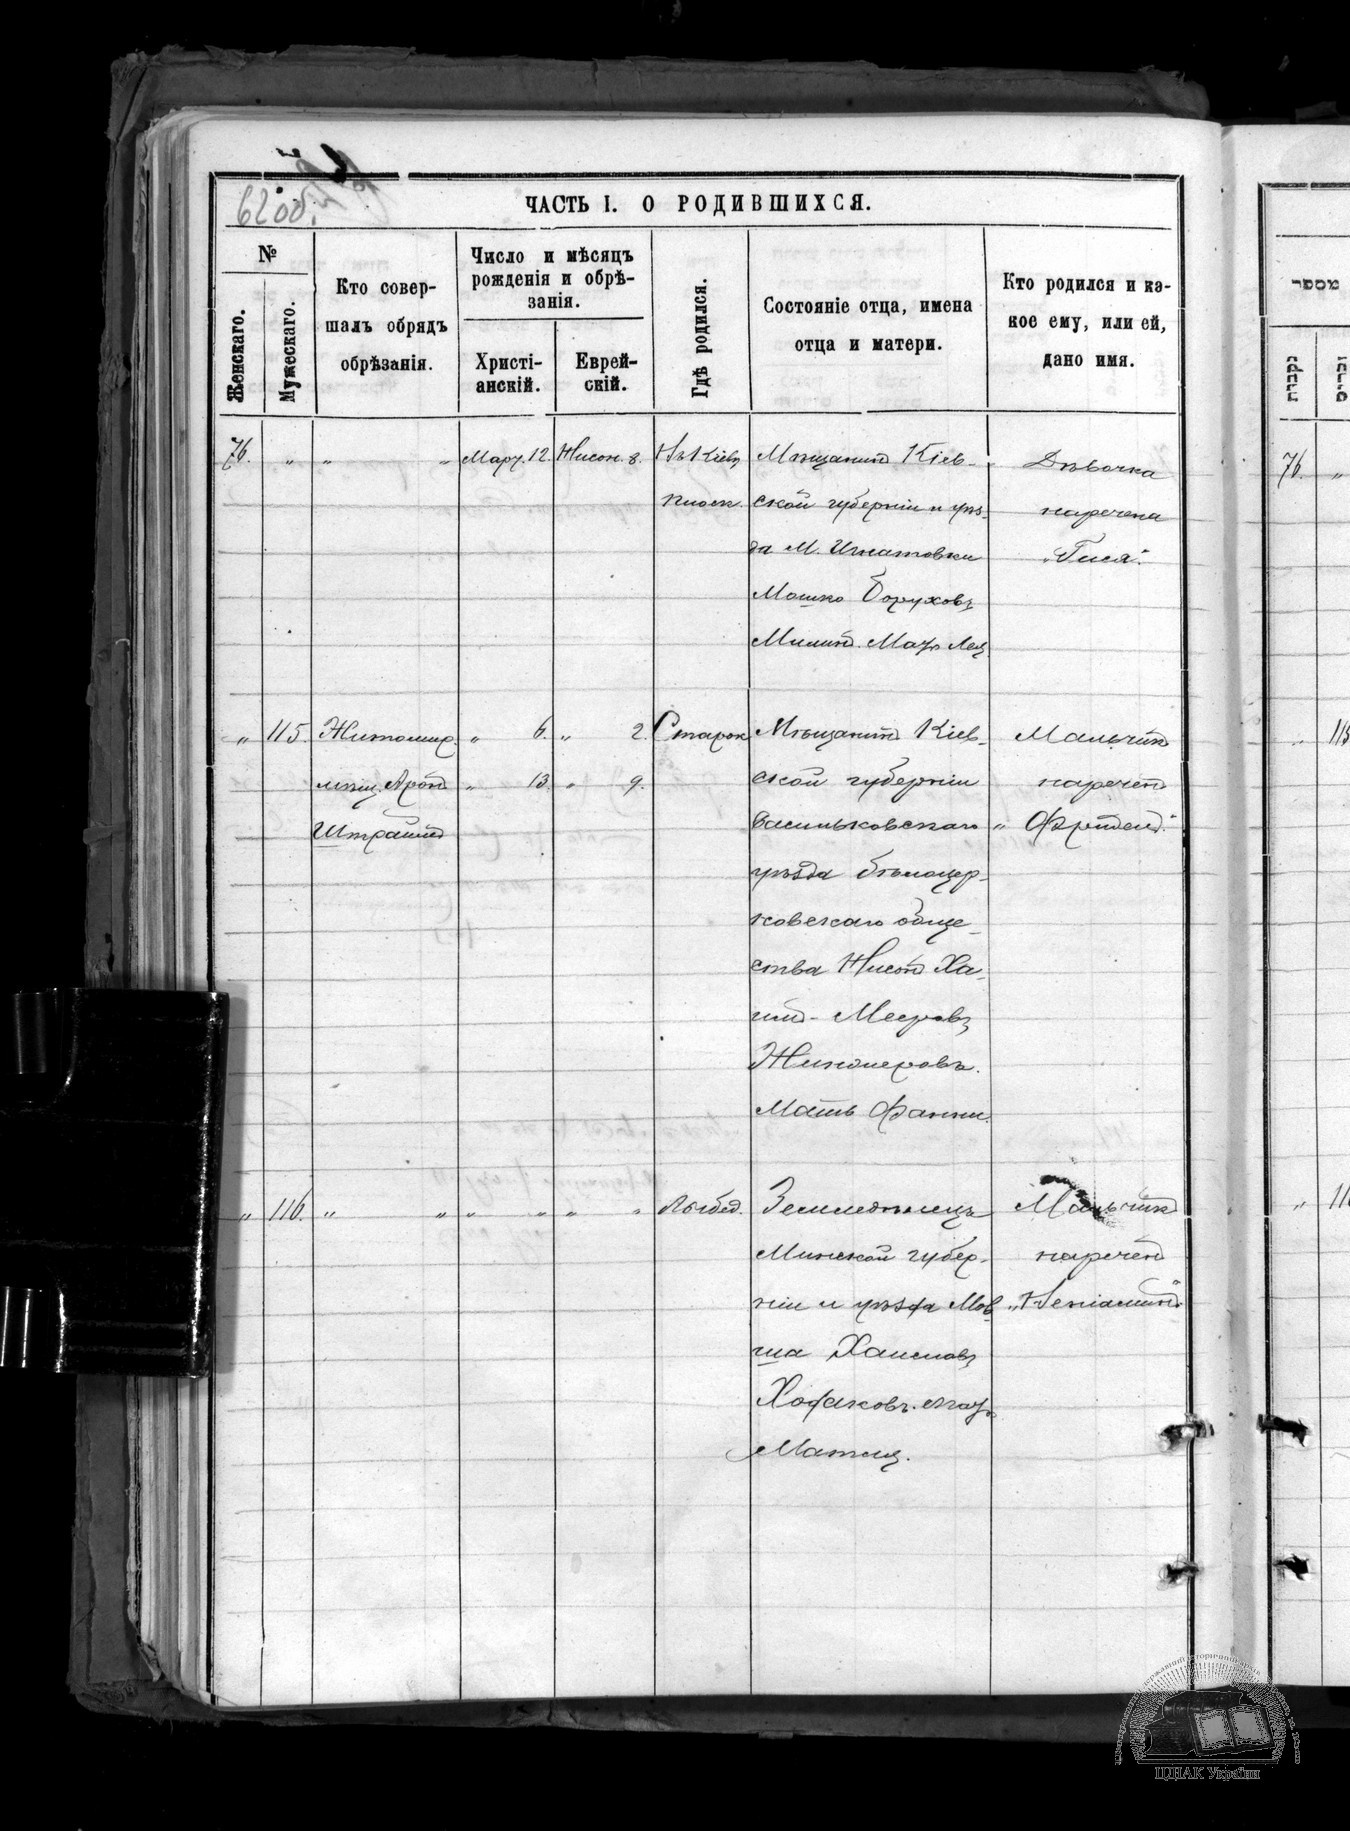 62 об.
ЧАСТЬ I. О РОДИВШИХСЯ.
№
Женскаго.
Мужескаго.
Кто совер-
шалъ обрядъ
обрѣзанія.
Число и мѣсяцъ
рожденія и обрѣ-
занія.
Христі-
анскій.
Еврей-
скій.
Гдѣ родился.
Состояніе отца, имена
отца и матери.
Кто родился и ка-
кое ему, или ей,
дано имя.
76. " " " Март. 12. Нисон. 8.
Мѣщанинъ Кіев-
ской губерніи и уѣз-
да М. Игнатовки
Мошко Боруховъ
Мать Лея
Дѣвочка
наречена
"Гися".
" 115. Житомир.
мѣщ. Аронъ
" 6. " 2.
" 13. " 9.
Старок.
Мѣщанинъ Кіев-
ской губерніи
Васильковскаго
уѣзда бѣлоцер-
ковскаго обще-
ства Нисонъ Ха-
имъ - Мееровъ
Мать Фанни.
Мальчикъ
нареченъ
" 116. " " " " " "
Лыбед.
Земледѣлецъ
Минской губер-
ніи и уѣзда Мов-
ша Хаимовъ
Ходаковъ. мать
Матля.
Мальчикъ
нареченъ
"Веніаминъ"
מספר
נקבות
זכרים
76. "
" 115
" 116
ЦДІАК України